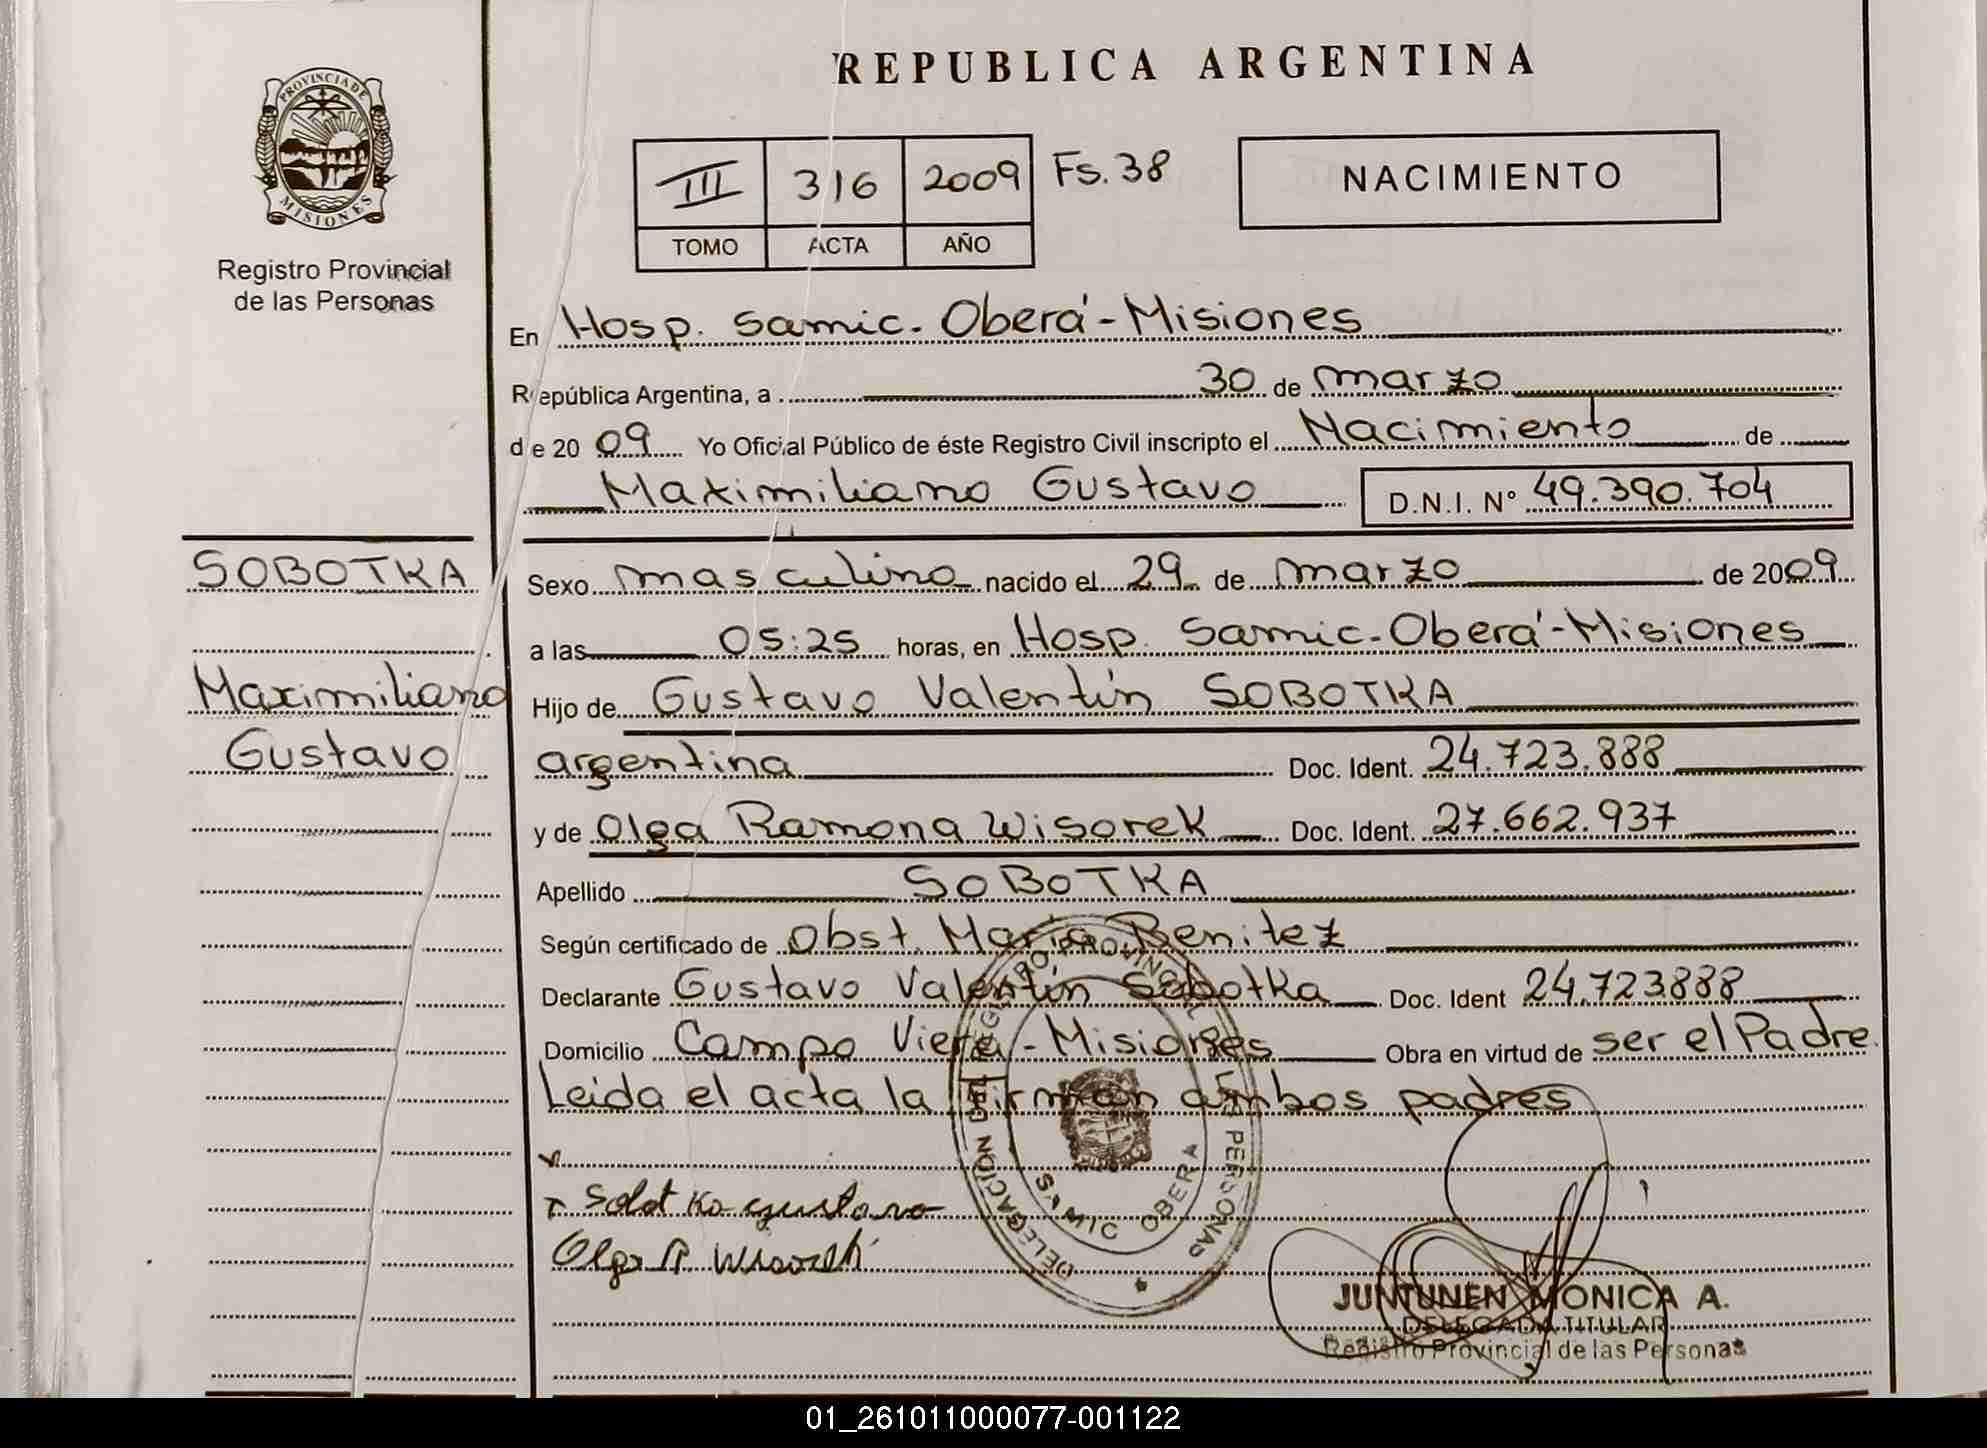 REPUBLICA ARGENTINA
PROVINCIA DE MISIONES
Registro Provincial
de las Personas
III 316 2009 Fs. 38
TOMO ACTA AÑO
NACIMIENTO
En Hosp. Samic. Oberá - Misiones
República Argentina, a 30 de marzo
de 2009 Yo Oficial Público de éste Registro Civil inscripto el Nacimiento de
Maximiliano Gustavo D.N.I. N° 49.390.704
SOBOTKA
Maximiliano
Gustavo
Sexo masculino nacido el 29 de marzo de 2009
a las 05:25 horas, en Hosp. Samic. Oberá - Misiones
Hijo de Gustavo Valentín SOBOTKA
argentina Doc. Ident. 24.723.888
y de Olga Ramona Wisorek Doc. Ident. 27.662.937
Apellido SOBOTKA
Según certificado de Obst. Maria Benitez
Declarante Gustavo Valentín Sobotka Doc. Ident 24.723888
Domicilio Campo Viera - Misiones Obra en virtud de ser el Padre.
Leida el acta la firman ambos padres
DELEGACIÓN DEL REGISTRO PROVINCIAL DE LAS PERSONAS
SAMIC OBERA
JUNTUNEN MONICA A.
DELEGADA TITULAR
Registro Provincial de las Personas
01_261011000077-001122